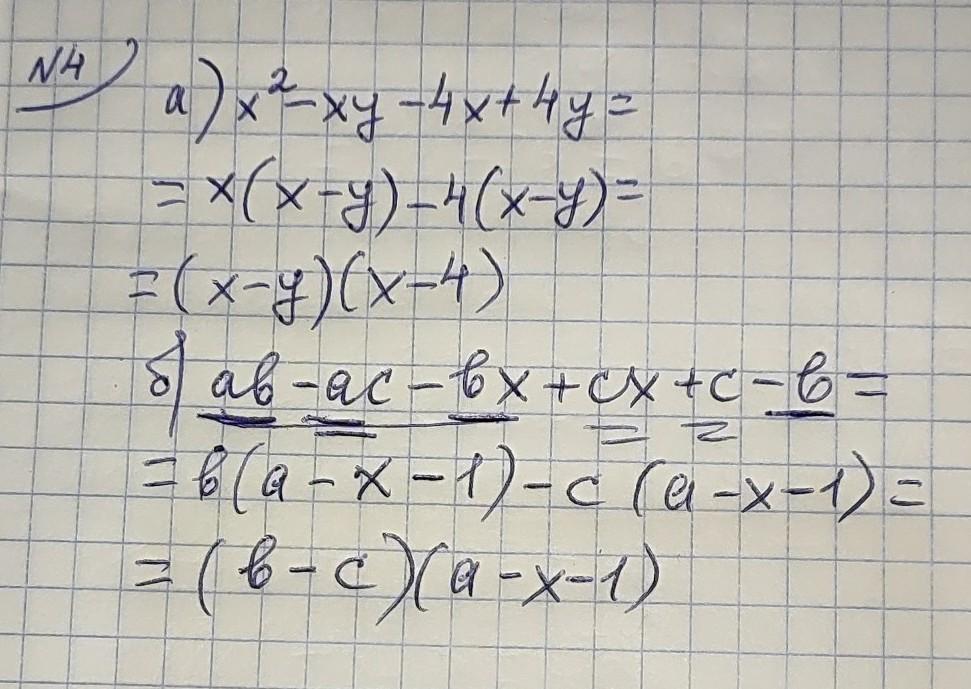 №4
а) x² - xy - 4x + 4y =
= x(x - y) - 4(x - y) =
= (x - y)(x - 4)
б) ab - ac - bx + cx + c - b =
= b(a - x - 1) - c (a - x - 1) =
= (b - c)(a - x - 1)